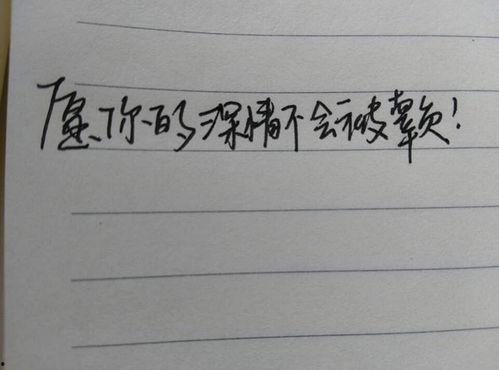 愿你的深情不会被辜负!